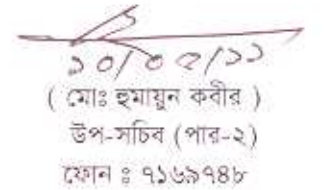 ১০/০৫/১১
( মোঃ হুমায়ুন কবীর )
উপ-সচিব (পার-২)
ফোন ঃ ৭১৬৯৭৪৮